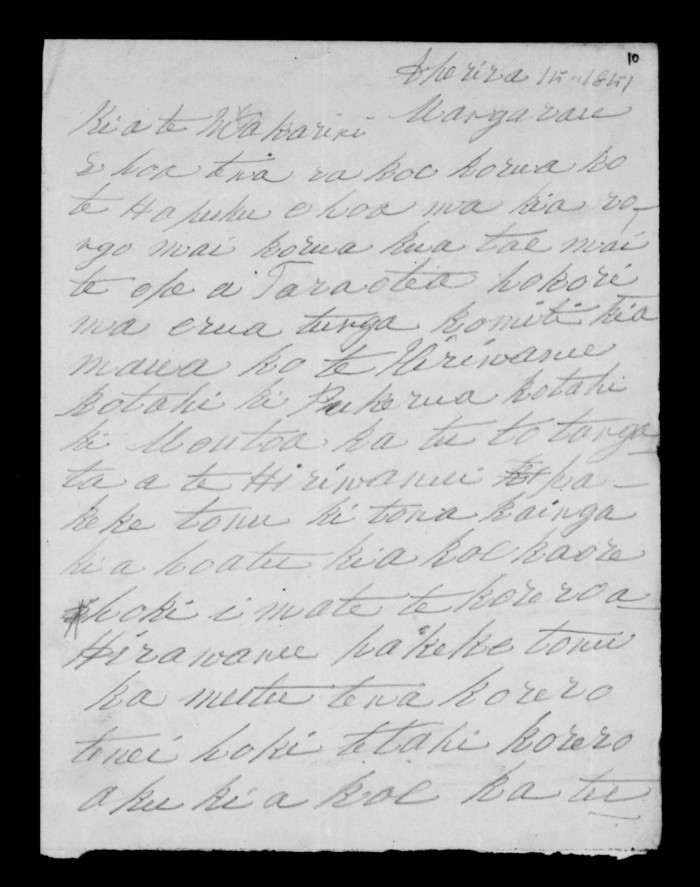 10
Aperira 15 1851
Mangarau
Kia te Makarini
E hoa tena ra koe korua ko
te Hapuku e hoa ma kia ro-
ngo mai korua kua tae mai
te ope a Taraotea hokori
ma erua tunga komiti kia
maua ko te Hiriwanu
kotahi ki Pukerua kotahi
ki Moutoa ka tu to tanga
ta a te Hiriwanui pa-
keke tonu ki tona kainga
kia hoatu kia koe kaore
hoki i mate te korero a
Hirawanu pakeke tonu
ka mutu tena korero
tenei hoki tetahi korero
aku ki a koe ka tu